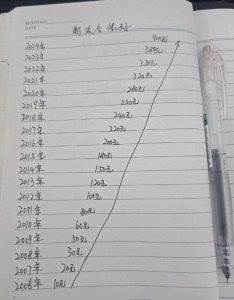 DATE
2024年 400元
2023年 380元
2022年 350元
2021年 320元
2020年 280元
2019年 250元
2018年 240元
2017年 220元
2016年 200元
2015年 180元
2014年 150元
2013年 120元
2012年 100元
2011年 80元
2010年 60元
2009年 50元
2008年 30元
2007年 20元
2006年 10元